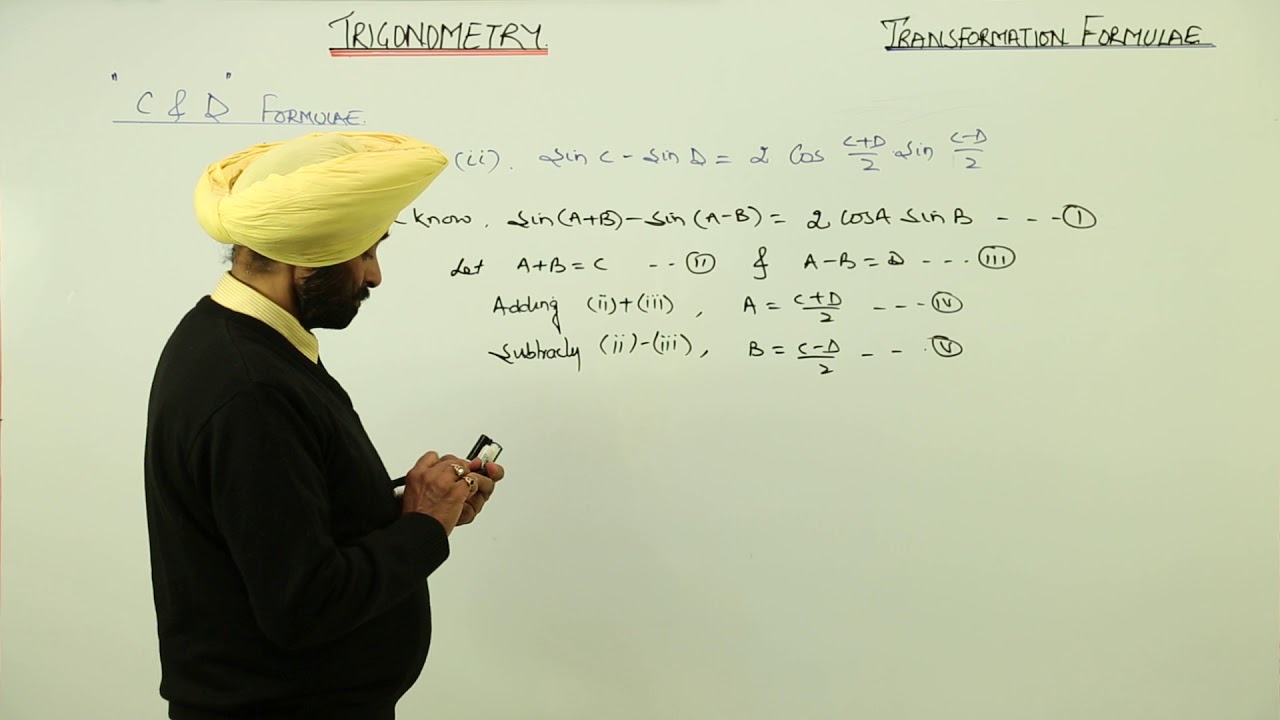 TRIGONOMETRY.
TRANSFORMATION FORMULAE
"C & D" FORMULAE.
(ii). Sin C - Sin D = 2 Cos (C+D)/2 . Sin (C-D)/2
know, Sin(A+B) - Sin(A-B) = 2 COSA SinB - - - (I)
Let A+B = C - - (II) & A-B = D - - - (III)
Adding (ii)+(iii), A = (C+D)/2 - - - (IV)
(ii)-(iii), B = (C-D)/2 - - - (V)